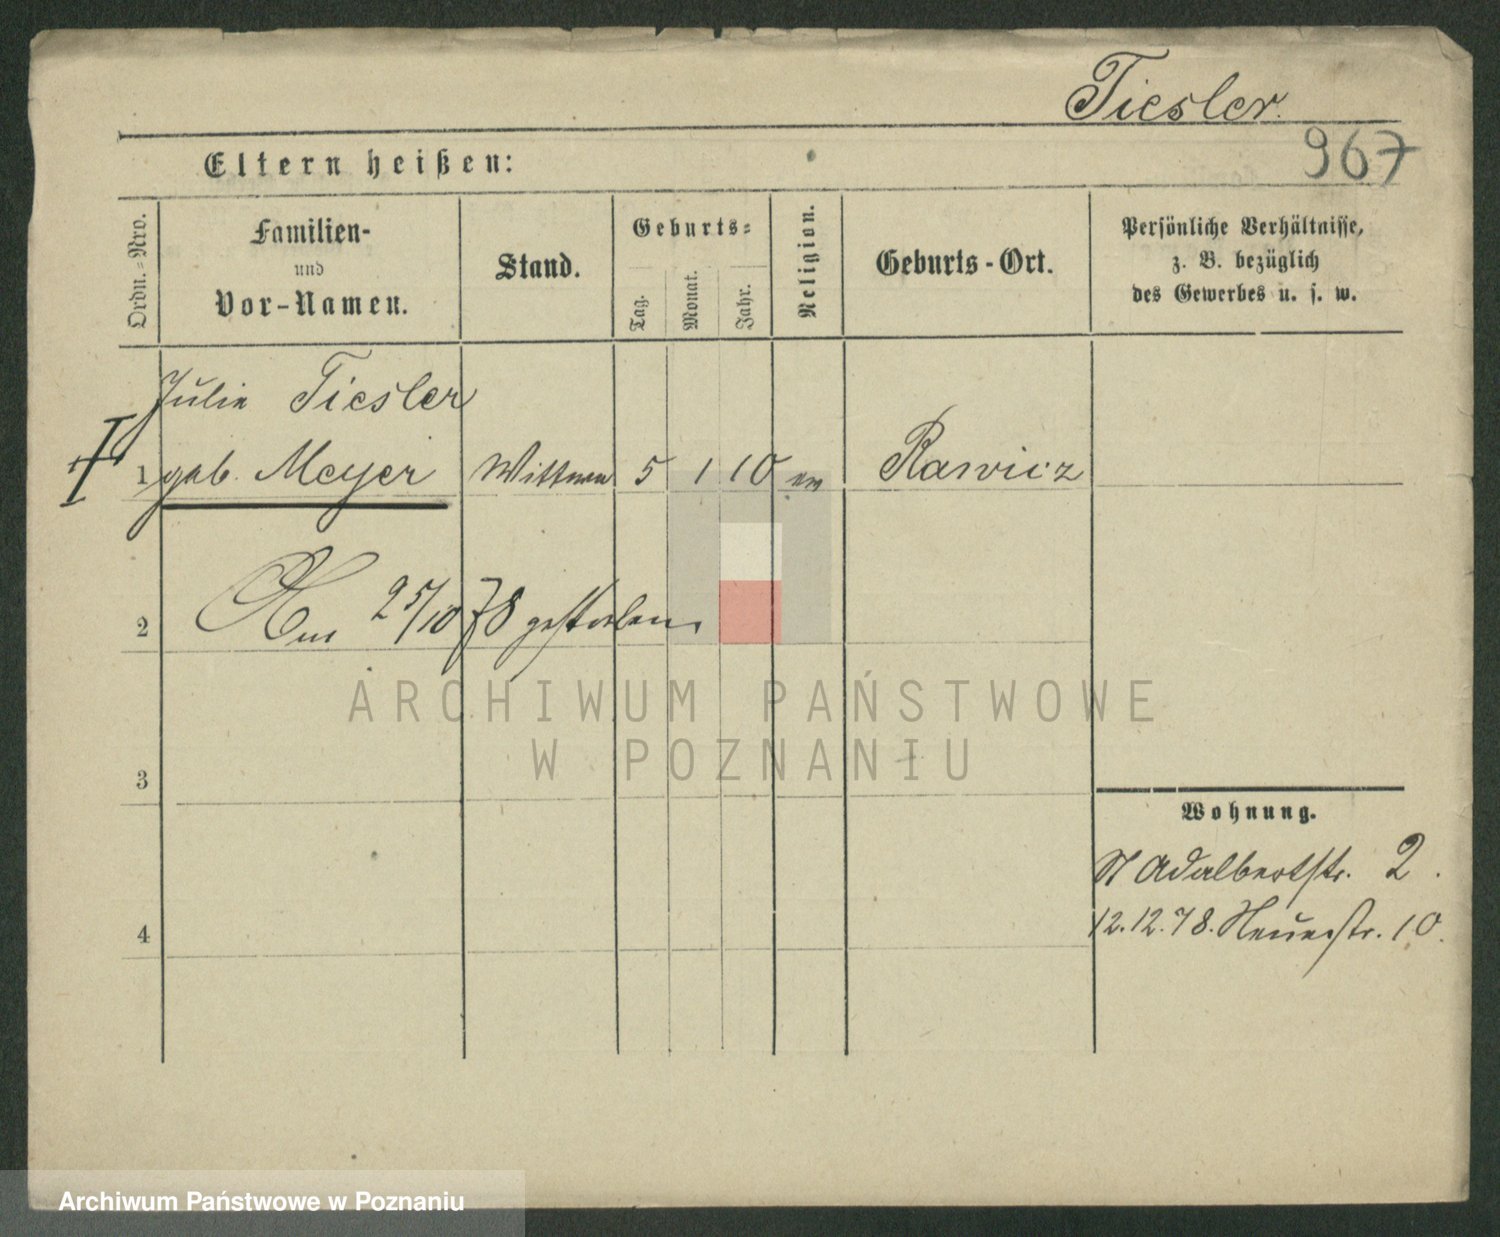 Tiesler.
967
Eltern heißen:
Ordn.=Nro.
Familien-
und
Vor-Namen.
Stand.
Geburts=
Tag.
Monat.
Jahr.
Religion.
Geburts-Ort.
Persönliche Verhältnisse,
z. B. bezüglich
des Gewerbes u. s. w.
Julie Tiesler
1 geb. Meyer Wittwe 5 1 10 ev Rawicz
2 Am 25/10 78 gestorben.
ARCHIWUM PAŃSTWOWE
W POZNANIU
3
Wohnung.
St Adalbertstr. 2.
12.12.78. Neuestr. 10.
4
Archiwum Państwowe w Poznaniu